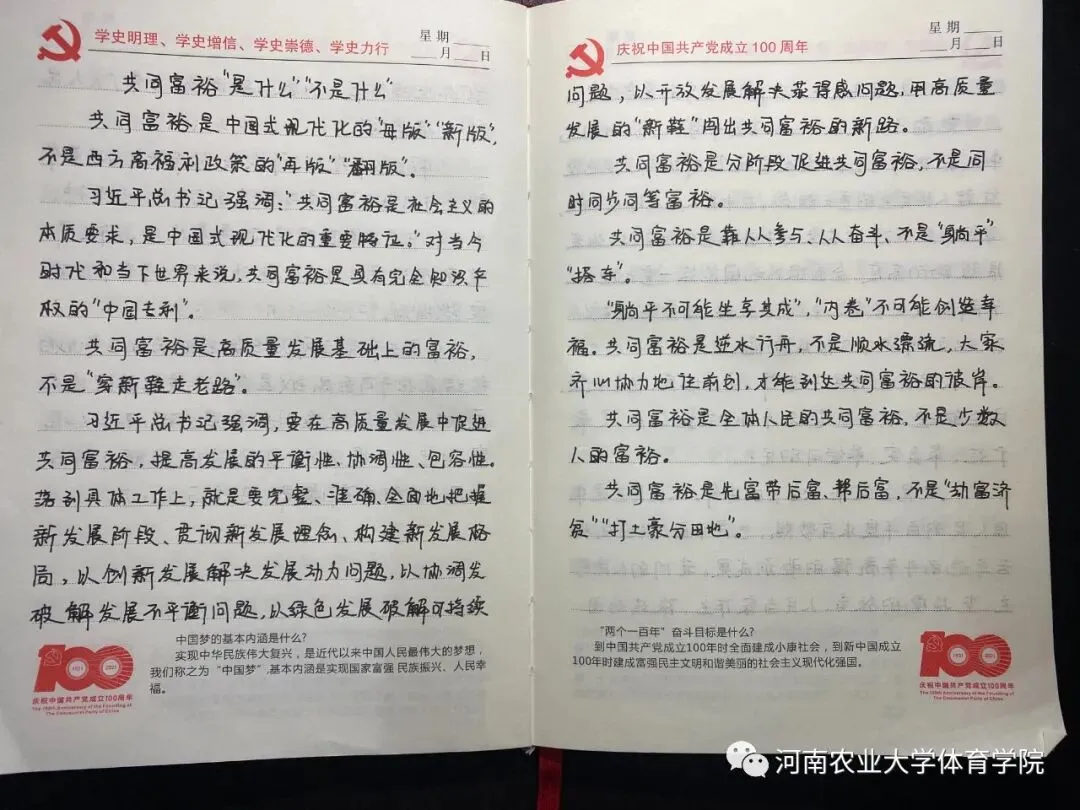 学史明理、学史增信、学史崇德、学史力行
星期
月 日
共同富裕"是什么""不是什么"
共同富裕是中国式现代化的"母版""新版",
不是西方高福利政策的"再版""翻版"。
习近平总书记强调:"共同富裕是社会主义的
本质要求,是中国式现代化的重要特征。"对当今
时代和当下世界来说,共同富裕是具有完全知识产
权的"中国专利"。
共同富裕是高质量发展基础上的富裕,
不是"穿新鞋走老路"。
习近平总书记强调,要在高质量发展中促进
共同富裕,提高发展的平衡性、协调性、包容性。
落到具体工作上,就是要完整、准确、全面地把握
新发展阶段、贯彻新发展理念、构建新发展格
局,以创新发展解决发展动力问题,以协调发
破解发展不平衡问题,以绿色发展破解可持续
中国梦的基本内涵是什么?
实现中华民族伟大复兴,是近代以来中国人民最伟大的梦想,
我们称之为"中国梦",基本内涵是实现国家富强 民族振兴、人民幸
福。
100
1921 2021
庆祝中国共产党成立100周年
The 100th Anniversary of the Founding of
The Communist Party of China
庆祝中国共产党成立100周年
星期
月 日
问题,以开放发展解决获得感问题,用高质量
发展的"新鞋"闯出共同富裕的新路。
共同富裕是分阶段促进共同富裕,不是同
时同步同等富裕。
共同富裕是靠人人参与、人人奋斗、不是"躺平"
"搭车"。
"躺平不可能坐享其成","内卷"不可能创造幸
福。共同富裕是逆水行舟,不是顺水漂流,大家
齐心协力地往前划,才能到达共同富裕的彼岸。
共同富裕是全体人民的共同富裕,不是少数
人的富裕。
共同富裕是先富带后富、帮后富,不是"劫富济
贫""打土豪分田地"。
"两个一百年"奋斗目标是什么?
到中国共产党成立100年时全面建成小康社会,到新中国成立
100年时建成富强民主文明和谐美丽的社会主义现代化强国。
100
1921 2021
庆祝中国共产党成立100周年
The 100th Anniversary of the Founding of
The Communist Party of China
河南农业大学体育学院